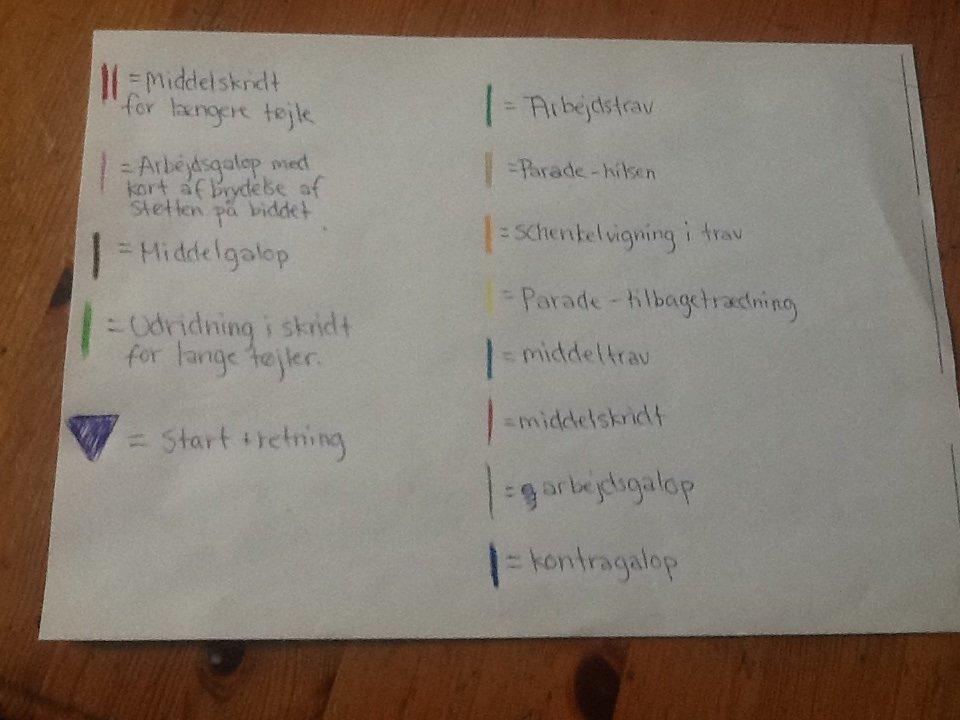 = Middelskridt
for længere tøjle
= Arbejdsgalop med
kort afbrydelse af
støtten på biddet
= Middelgalop
= Udridning i skridt
for lange tøjler.
= Start + retning
= Arbejdstrav
= Parade - hilsen
= schenkelvigning i trav
= Parade - tilbagetrædning
= middeltrav
= middelskridt
= arbejdsgalop
= kontragalop